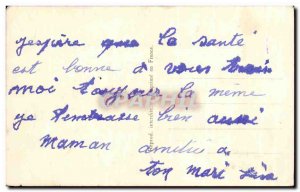 jespère que la santé
est bonne a vous
moi toujour la meme
je tembrasse bien aussi
maman amities a
ton mari